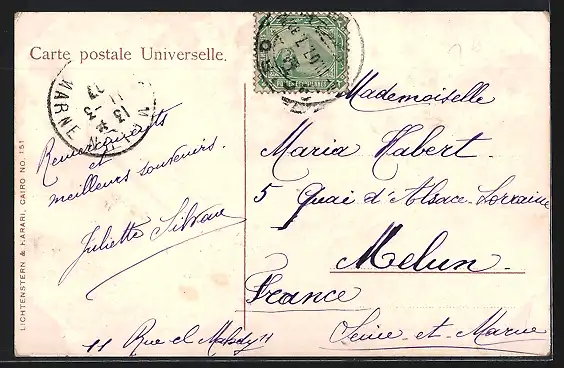 Carte postale Universelle.
MARNE
13
11 -3
07
Remerciements
et
meilleurs souvenirs.
Juliette Silvau
11 Rue el
Mademoiselle
Maria Habert.
5 Quai d'Alsace-Lorraine
Melun.
France
Seine-et-Marne
LICHTENSTERN & HARARI, CAIRO NO. 151